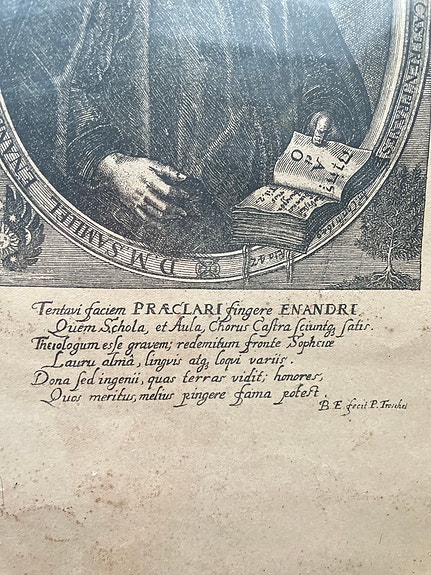 CASTREN
D. M. SAMUEL ENAN
Tentavi faciem PRÆCLARI fingere ENANDRI,
Quem Schola, et Aula, Chorus Castra sciuntq, satis.
Theologum esse gravem; redemitum fronte Sophciæ
Lauru almâ, lingvis atq, loqui variis.
Dona sed ingenii, quas terras vidit; honores,
Quos meritus, melius pingere fama potest.
B E fecit P. Troschel